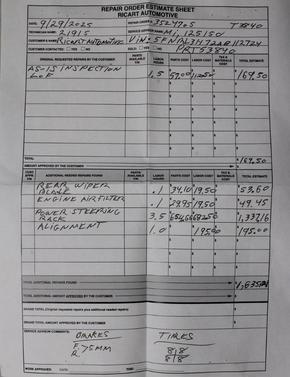 REPAIR ORDER ESTIMATE SHEET
RICART AUTOMOTIVE
DATE: 9/29/2025 REPAIR ORDER #: 3524705 T3840
TECHNICIAN NAME: 21915 SERVICE ADVISOR NAME: Mi, 125150
CUSTOMER'S NAME: RICART AUTOMOTIVE
CUSTOMER CONTACTED: YES NO SOLD: YES NO PRT53840
ORIGINAL REQUESTED REPAIRS FOUND PARTS AVAILABLE Y/N LABOR HOURS PARTS COST LABOR COST TAX & MATERIALS COST TOTAL ESTIMATE
AS-IS INSPECTION
LOF 1.5 57.00 112.50 $169.50
TOTAL $169.50
AMOUNT APPROVED BY THE CUSTOMER
ADDITIONAL NEEDED REPAIRS FOUND PARTS AVAILABLE Y/N LABOR HOURS PARTS COST LABOR COST TAX & MATERIALS COST TOTAL ESTIMATE
REAR WIPER
BLADE .1 $34.10 $19.50 $53.60
ENGINE AIR FILTER .1 $29.95 $19.50 $49.45
POWER STEERING
RACK 3.5
ALIGNMENT 1.0 $195.00 $195.00
TOTAL ADDITIONAL REPAIRS FOUND
TOTAL ADDITIONAL AMOUNT APPROVED BY THE CUSTOMER
GRAND TOTAL (Original requests repairs plus additional needed repairs)
GRAND TOTAL AMOUNT APPROVED BY THE CUSTOMER
SERVICE ADVISOR COMMENTS: BRAKES TIRES
F/R 75MM 8|8
8|8
WORK APPROVED: DATE: TIME: